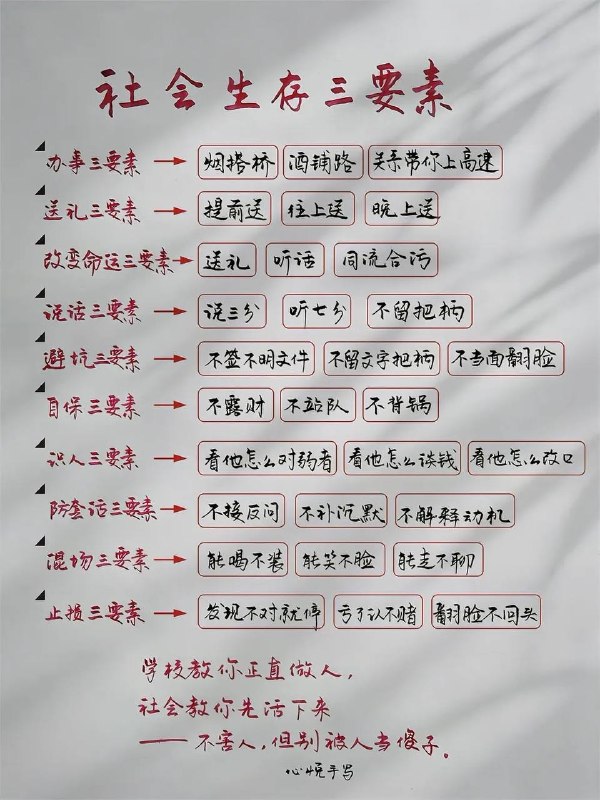 社会生存三要素
办事三要素 → 烟搭桥 酒铺路 关系带你上高速
送礼三要素 → 提前送 往上送 晚上送
改变命运三要素 → 送礼 听话 同流合污
说话三要素 → 说三分 听七分 不留把柄
避坑三要素 → 不签不明文件 不留文字把柄 不当面翻脸
自保三要素 → 不露财 不站队 不背锅
识人三要素 → 看他怎么对弱者 看他怎么谈钱 看他怎么改口
防套话三要素 → 不接反问 不补沉默 不解释动机
混场三要素 → 能喝不装 能笑不脸 能走不聊
止损三要素 → 发现不对就停 亏了认不赌 翻脸不回头
学校教你正直做人，
社会教你先活下来
——不害人，但别被人当傻子。
心悦手写